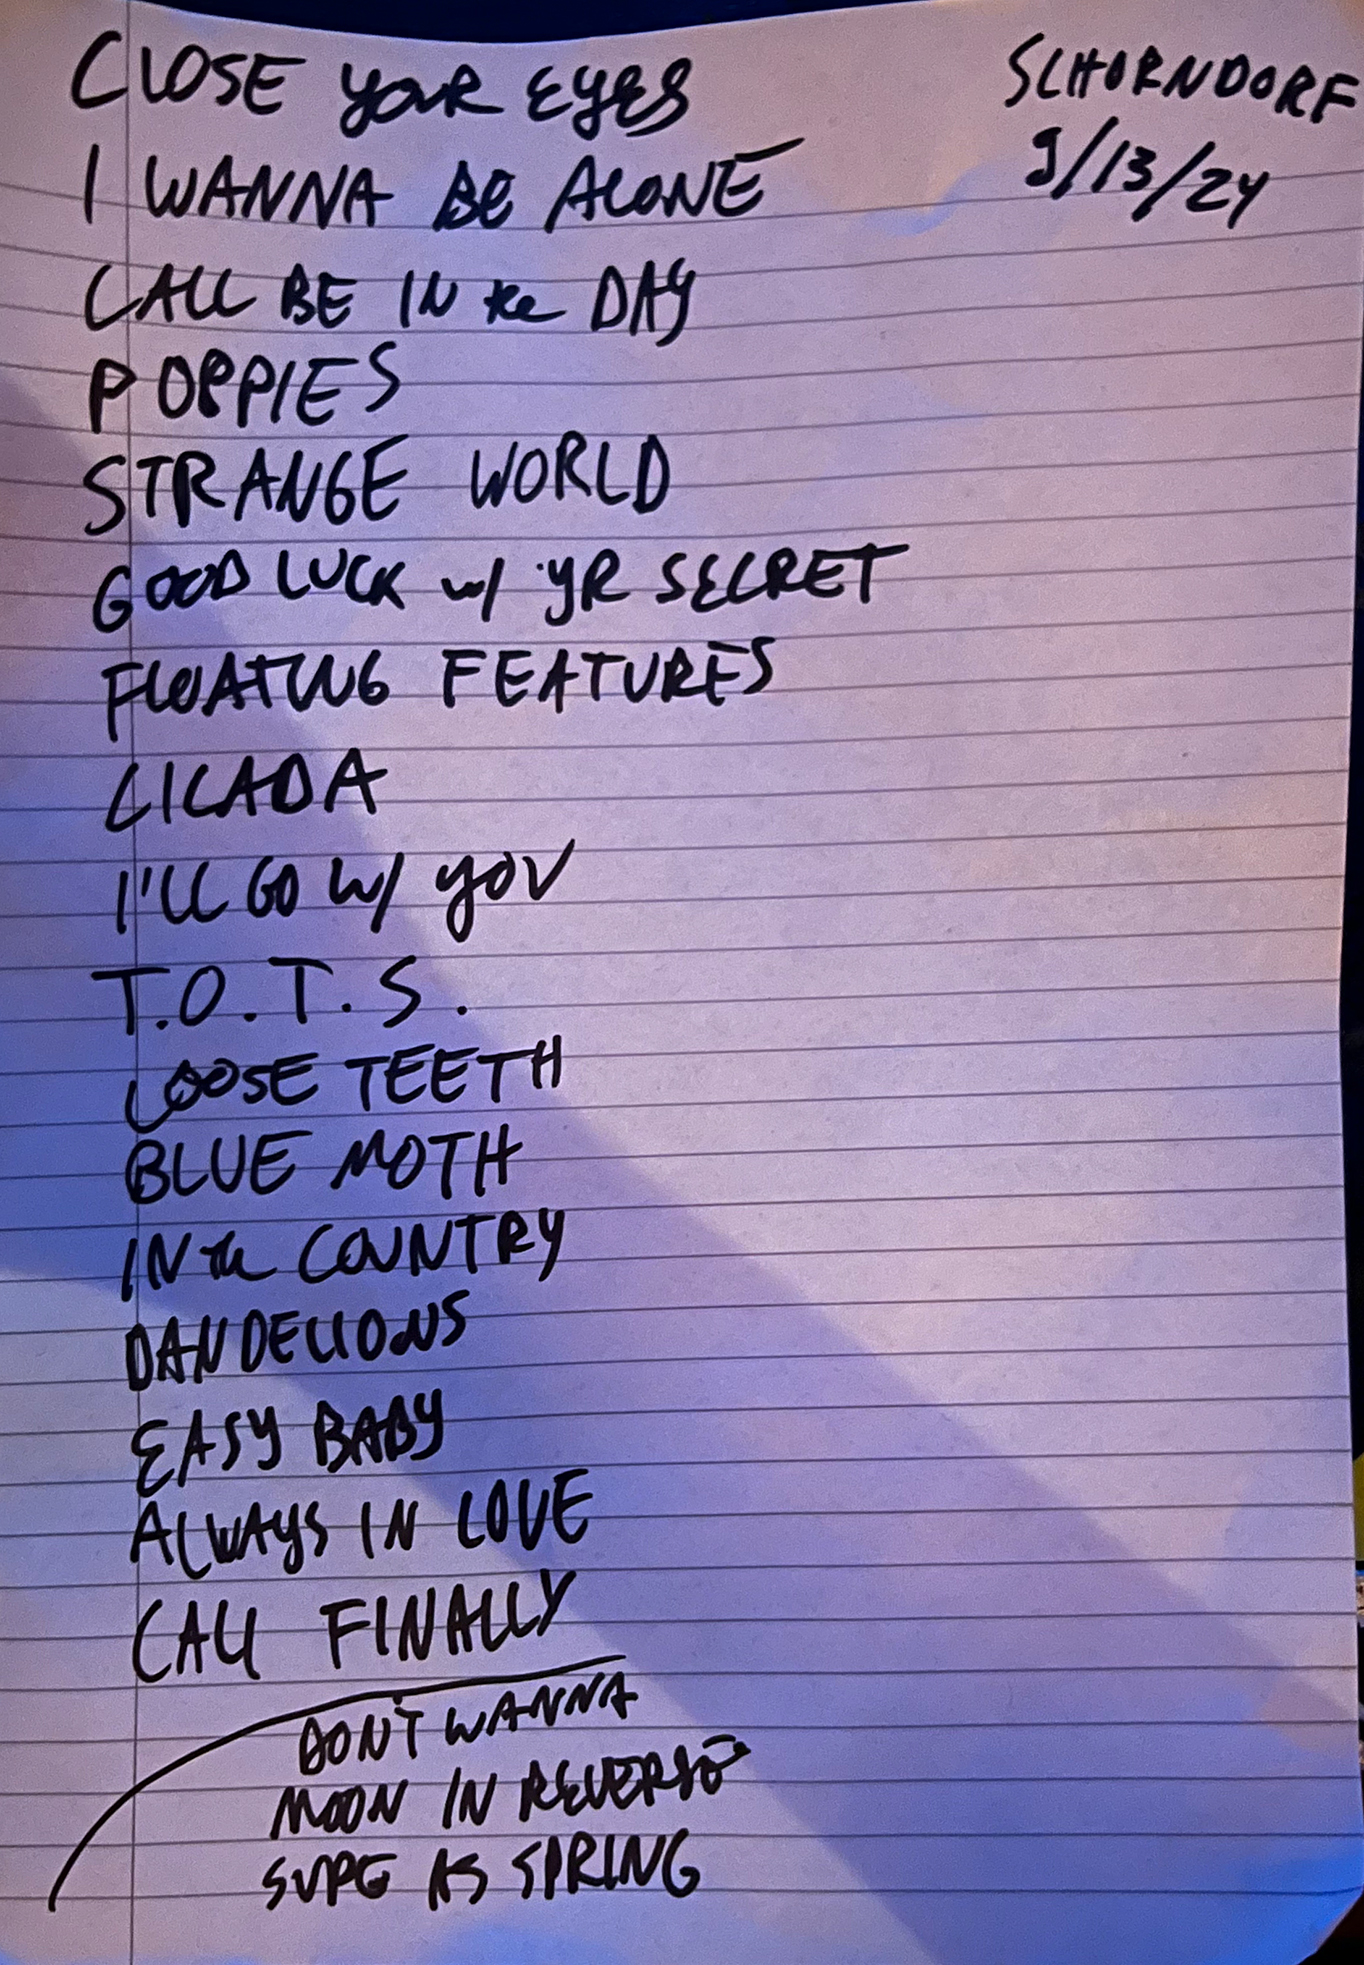 CLOSE YOUR EYES
SCHORNDORF
9/13/24
I WANNA BE ALONE
CALL BE IN the DAY
POPPIES
STRANGE WORLD
GOOD LUCK w/ YR SECRET
FLOATING FEATURES
CICADA
I'LL GO W/ YOU
T.O.T.S.
LOOSE TEETH
BLUE MOTH
IN the COUNTRY
DANDELIONS
EASY BABY
ALWAYS IN LOVE
CALL FINALLY
DON'T WANNA
MOON IN REVERSE
SURE AS SPRING